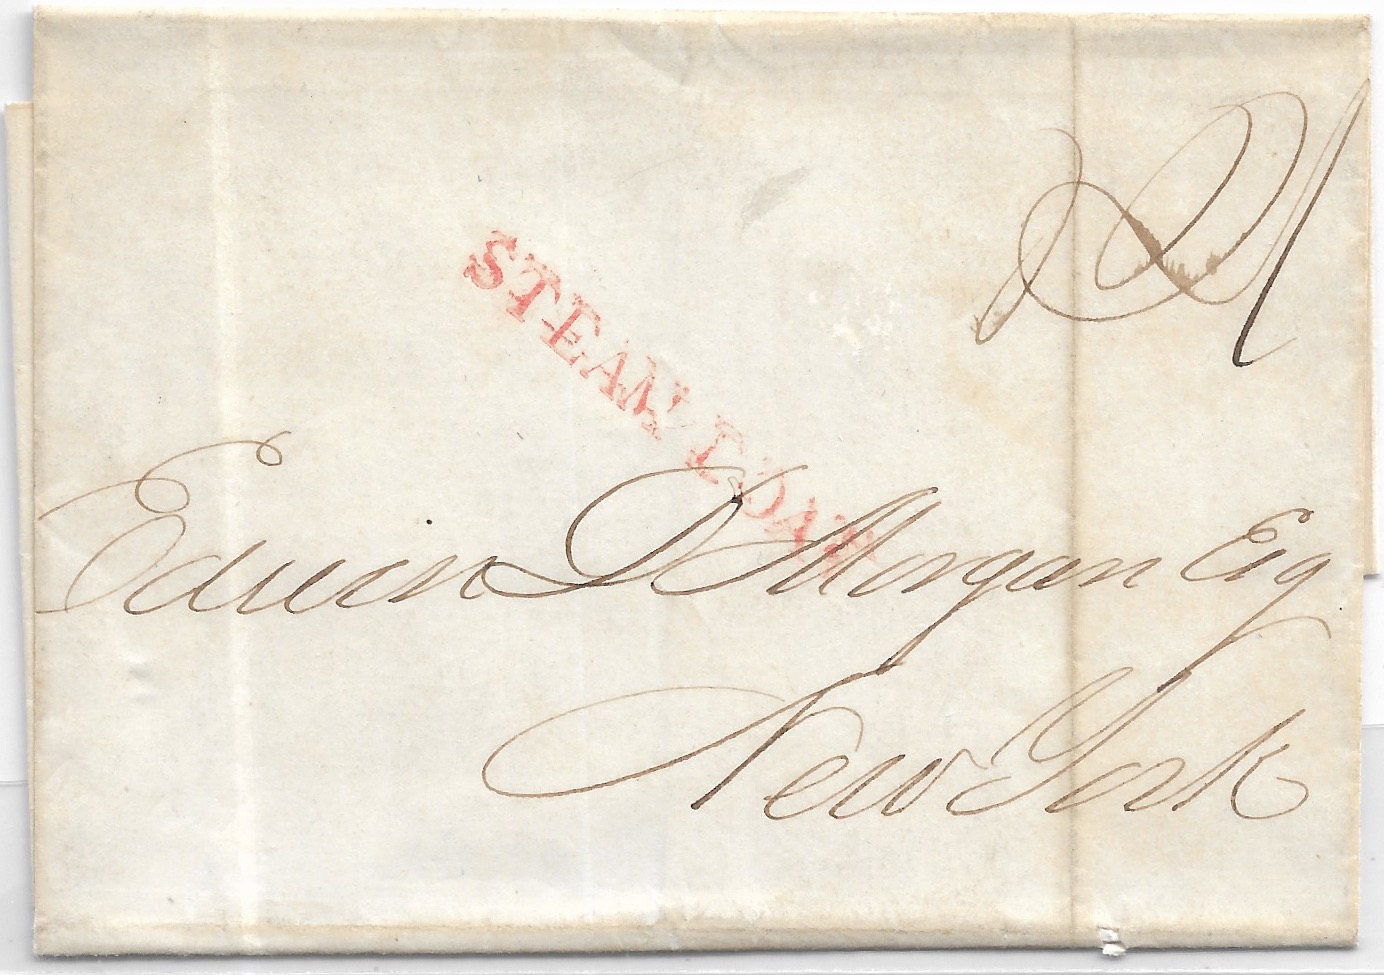 21
STEAM BOAT
Edwin D Morgan Esq
New York